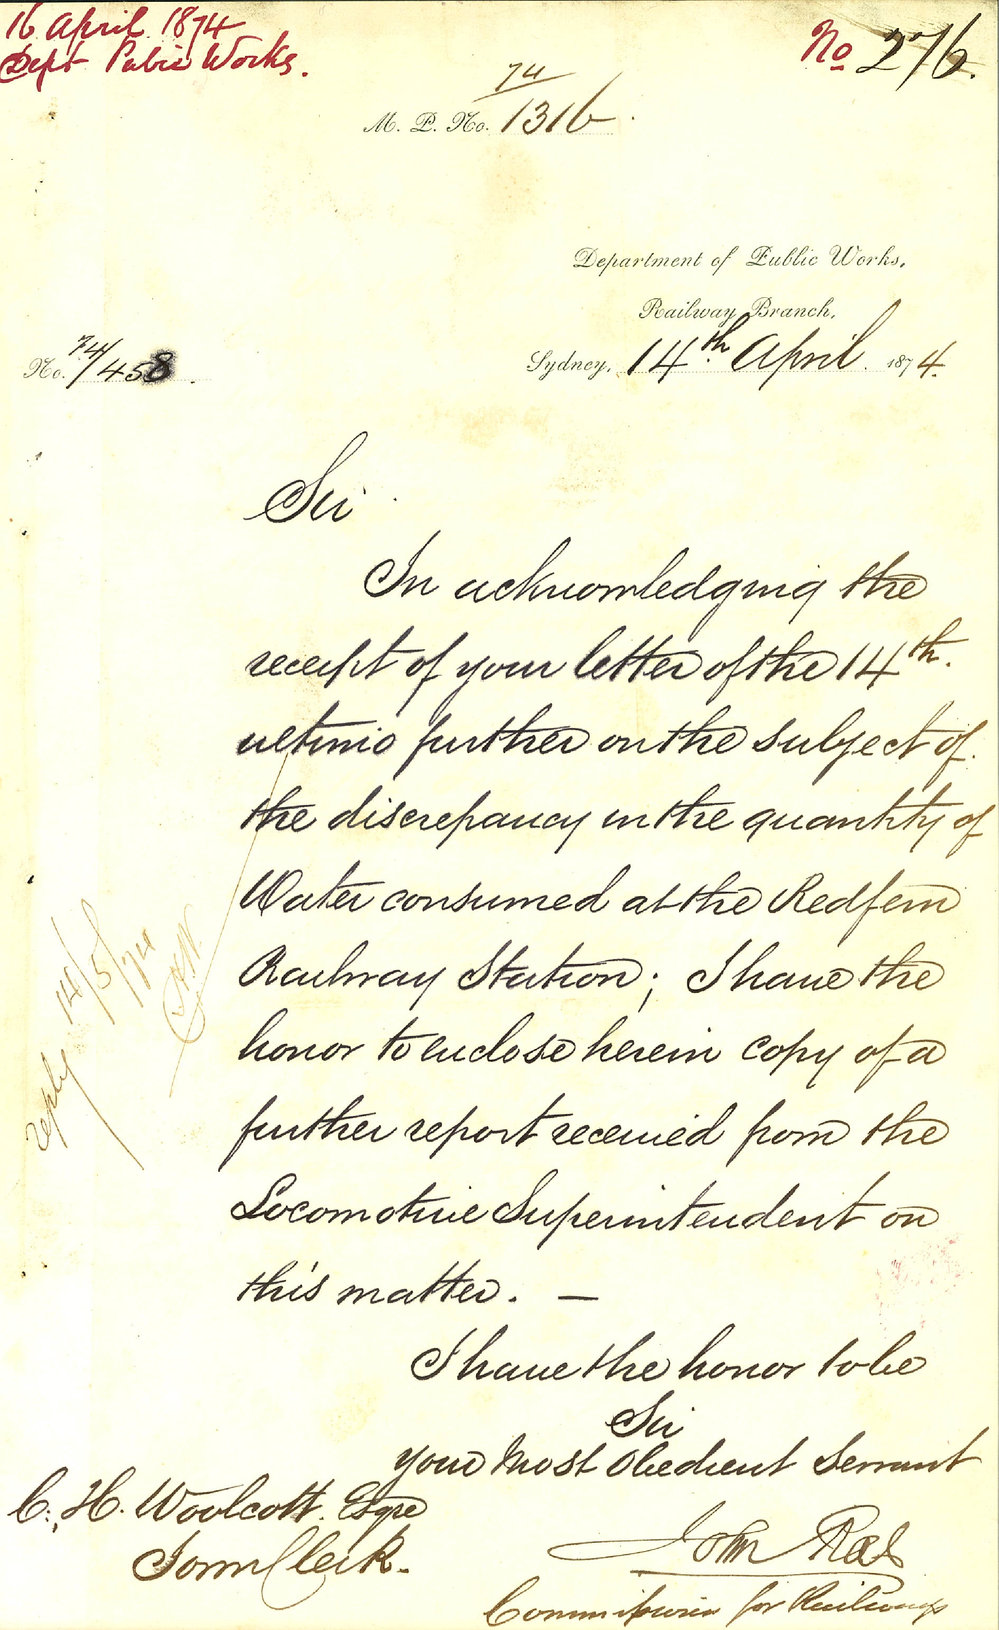 16 April 1874
Dept Public Works.
No 276.
74
M. P. No. 1316
Department of Public Works,
Railway Branch,
No. 74/458
Sydney, 14th April 1874.
Sir
In acknowledging the
receipt of your letter of the 14th.
ultimo further on the subject of
the discrepancy in the quantity of
Water consumed at the Redfern
Railway Station; I have the
honor to enclose herein copy of a
further report received from the
Locomotive Superintendent on
this matter. —
reply 14/5/74
I have the honor to be
Sir
your Most Obedient Servant
C. H. Woolcott. Esqre
Town Clerk.
John Rae
Commissioner for Railways